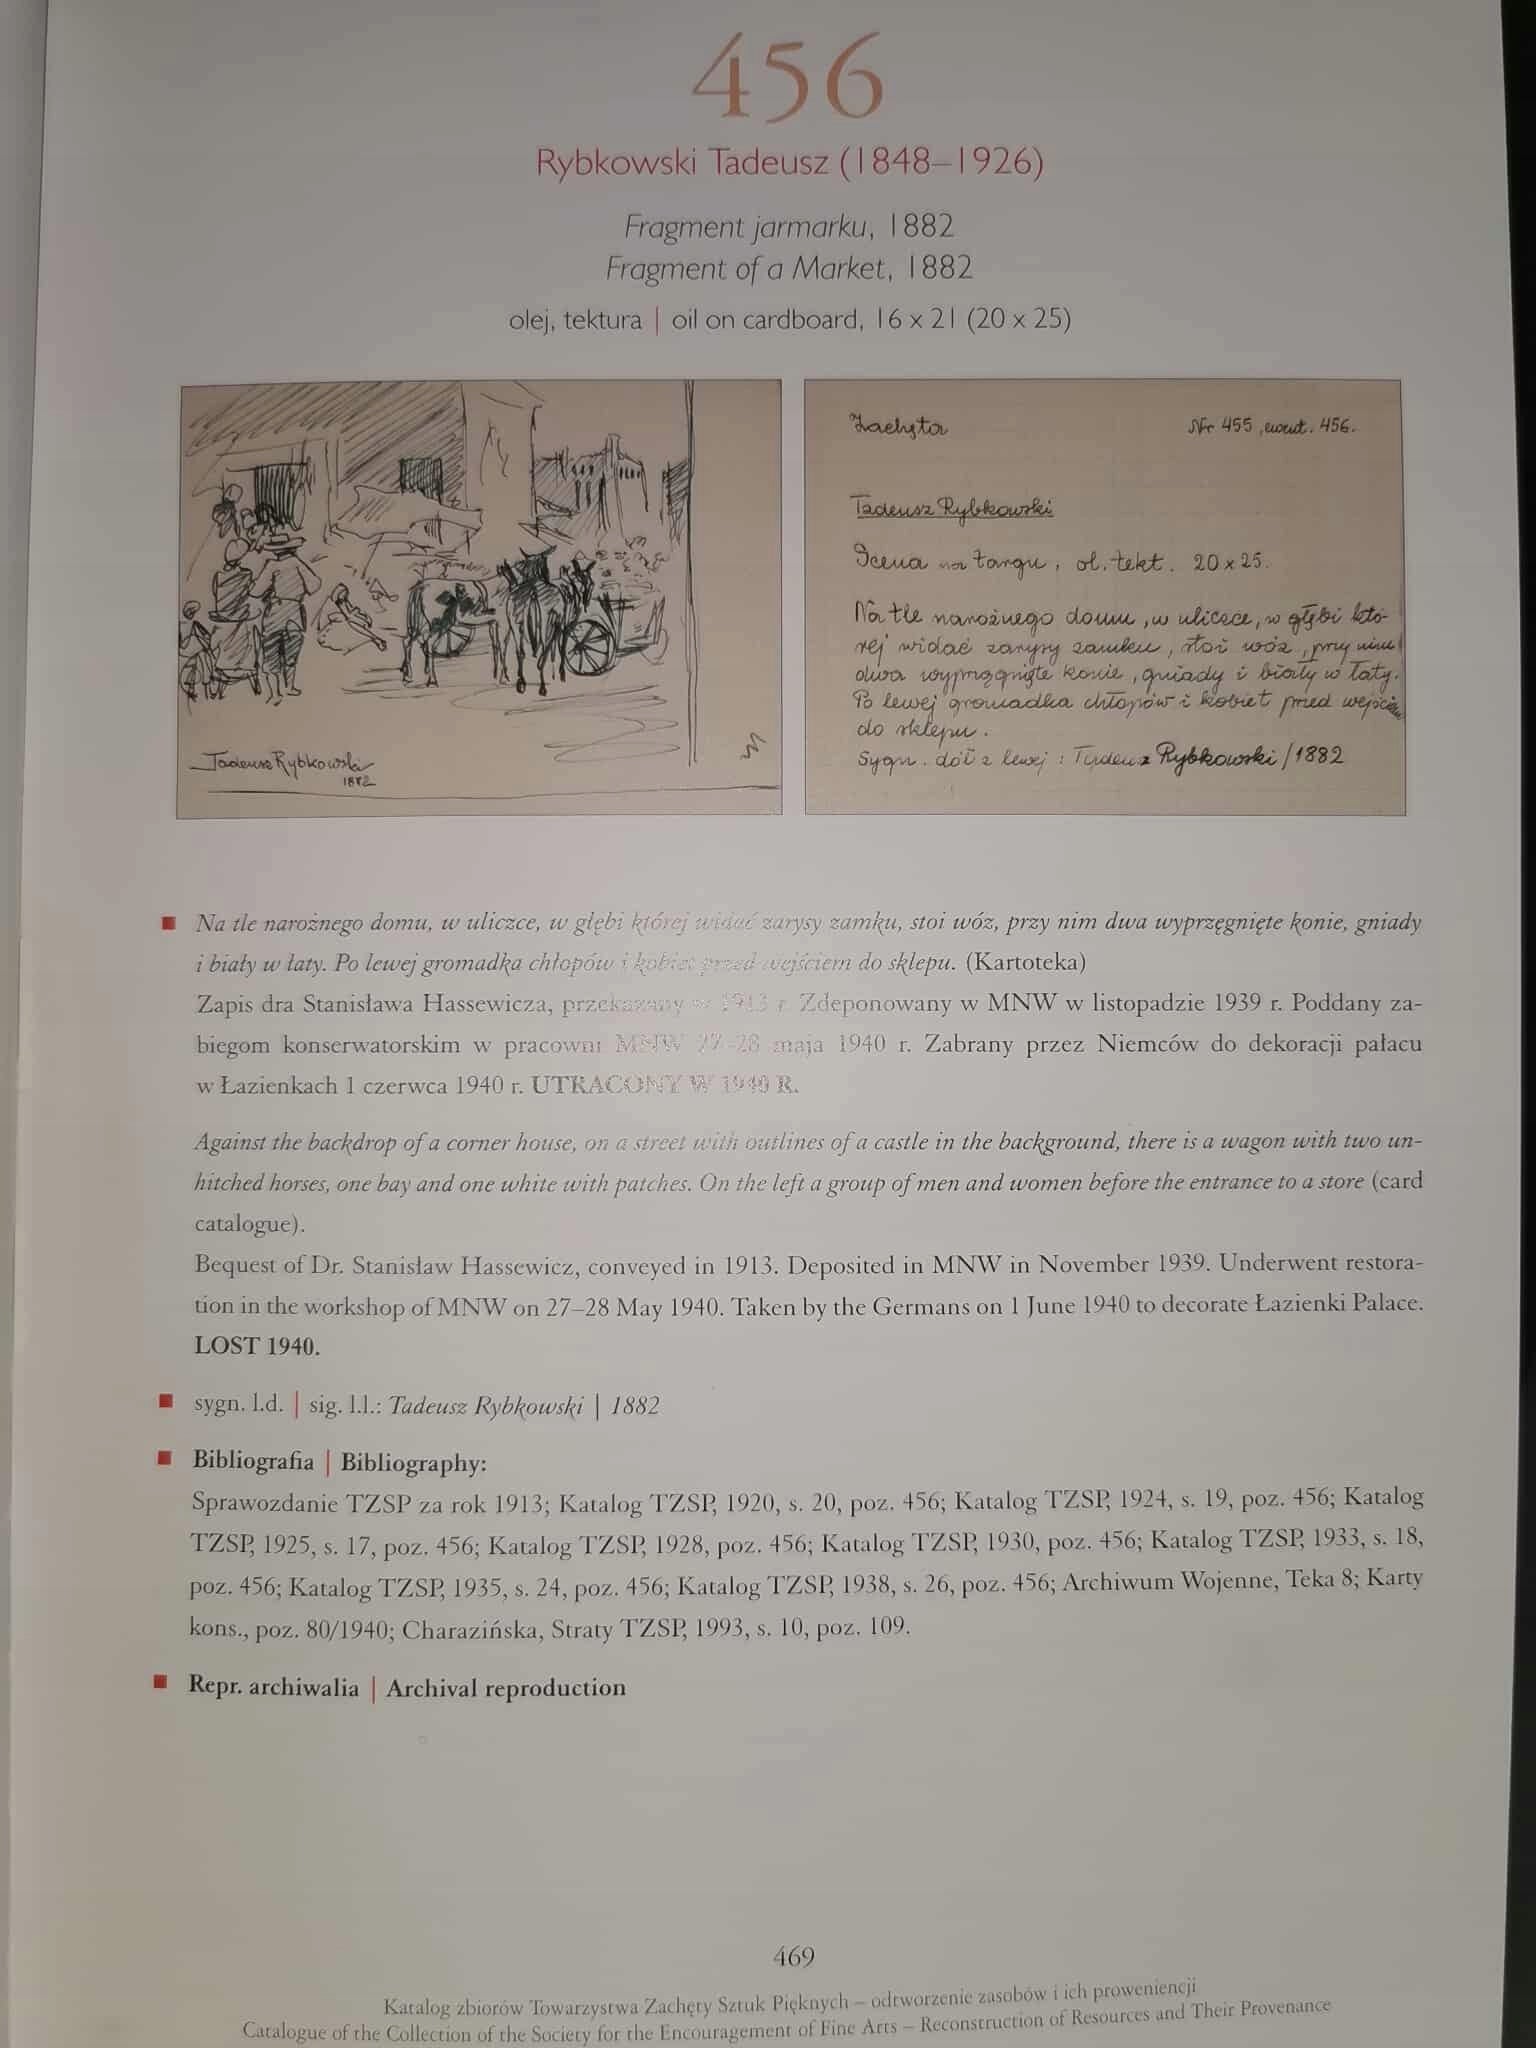 456
Rybkowski Tadeusz (1848–1926)
Fragment jarmarku, 1882
Fragment of a Market, 1882
olej, tektura | oil on cardboard, 16 x 21 (20 x 25)
Tadeusz Rybkowski
1882
Zachęta Nr 455, inwent. 456.
Tadeusz Rybkowski
Scena na targu, ol. tekt. 20 x 25.
Na tle narożnego domu, w uliczce, w głębi któ-
rej widać zarysy zamku, stoi wóz, przy nim
dwa wyprzągnięte konie, gniady i biały w łaty.
Po lewej gromadka chłopów i kobiet przed wejściem
do sklepu.
Sygn. dół z lewej: Tadeusz Rybkowski/1882
Na tle narożnego domu, w uliczce, w głębi której widać zarysy zamku, stoi wóz, przy nim dwa wyprzęgnięte konie, gniady
i biały w łaty. Po lewej gromadka chłopów i kobiet przed wejściem do sklepu. (Kartoteka)
Zapis dra Stanisława Hassewicza, przekazany w 1913 r. Zdeponowany w MNW w listopadzie 1939 r. Poddany za-
biegom konserwatorskim w pracowni MNW 27–28 maja 1940 r. Zabrany przez Niemców do dekoracji pałacu
w Łazienkach 1 czerwca 1940 r. UTRACONY W 1940 R.
Against the backdrop of a corner house, on a street with outlines of a castle in the background, there is a wagon with two un-
hitched horses, one bay and one white with patches. On the left a group of men and women before the entrance to a store (card
catalogue).
Bequest of Dr. Stanisław Hassewicz, conveyed in 1913. Deposited in MNW in November 1939. Underwent restora-
tion in the workshop of MNW on 27–28 May 1940. Taken by the Germans on 1 June 1940 to decorate Łazienki Palace.
LOST 1940.
sygn. l.d. | sig. l.l.: Tadeusz Rybkowski | 1882
Bibliografia | Bibliography:
Sprawozdanie TZSP za rok 1913; Katalog TZSP, 1920, s. 20, poz. 456; Katalog TZSP, 1924, s. 19, poz. 456; Katalog
TZSP, 1925, s. 17, poz. 456; Katalog TZSP, 1928, poz. 456; Katalog TZSP, 1930, poz. 456; Katalog TZSP, 1933, s. 18,
poz. 456; Katalog TZSP, 1935, s. 24, poz. 456; Katalog TZSP, 1938, s. 26, poz. 456; Archiwum Wojenne, Teka 8; Karty
kons., poz. 80/1940; Charazińska, Straty TZSP, 1993, s. 10, poz. 109.
Repr. archiwalia | Archival reproduction
469
Katalog zbiorów Towarzystwa Zachęty Sztuk Pięknych – odtworzenie zasobów i ich proweniencji
Catalogue of the Collection of the Society for the Encouragement of Fine Arts – Reconstruction of Resources and Their Provenance